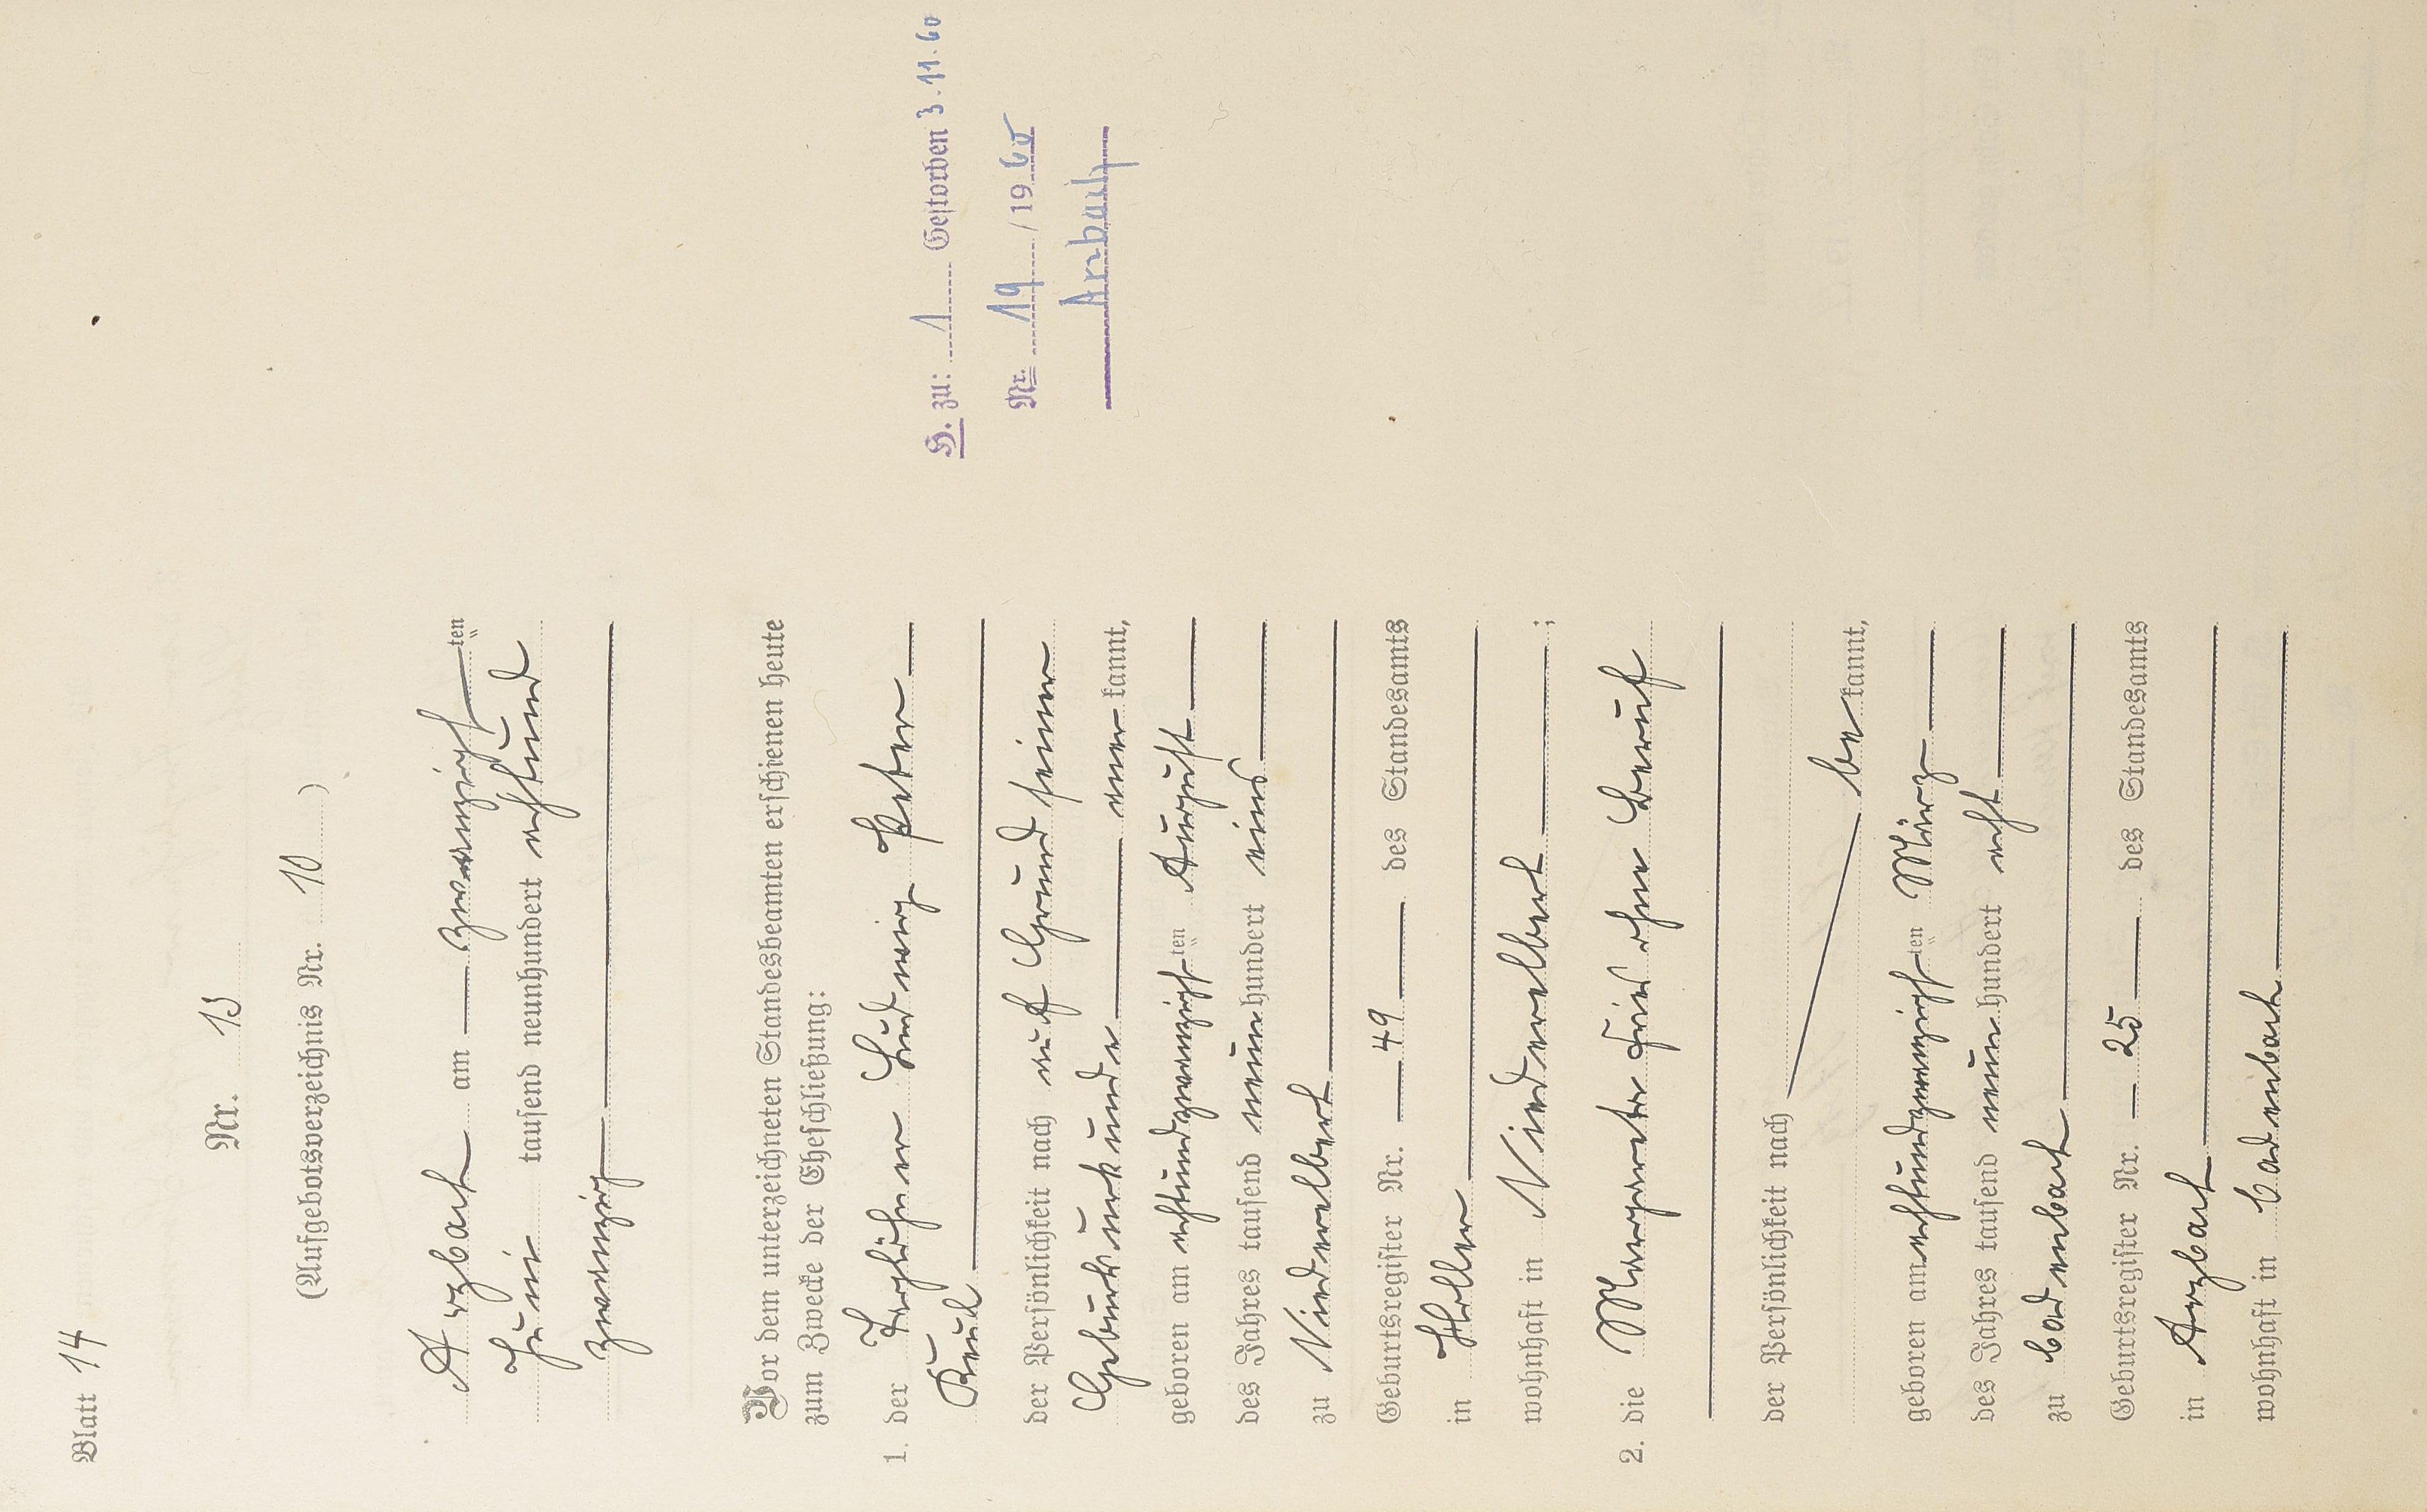 Blatt 14
Nr. 13
(Aufgebotsverzeichnis Nr. 10)
Arzbach am zwanzigsten
Juni tausend neunhundert achtund
zwanzig
Vor dem unterzeichneten Standesbeamten erschienen heute
zum Zwecke der Eheschließung:
1. der Taglöhner Ludwig Peter
Keul
der Persönlichkeit nach auf Grund seiner
Geburtsurkunde anerkannt,
geboren am achtundzwanzigsten August
des Jahres tausend neunhundert eins
zu Niederelbert
Geburtsregister Nr. 49 des Standesamts
in Holler
wohnhaft in Niederelbert;
2. die Margareta Fries ohne Beruf
der Persönlichkeit nach
bekannt,
geboren am achtundzwanzigsten März
des Jahres tausend neunhundert acht
zu Cadenbach
Geburtsregister Nr. 25 des Standesamts
in Arzbach
wohnhaft in Cadenbach
H. zu: 1 Gestorben 3.11.60
Nr. 19 / 1960
Arzbach